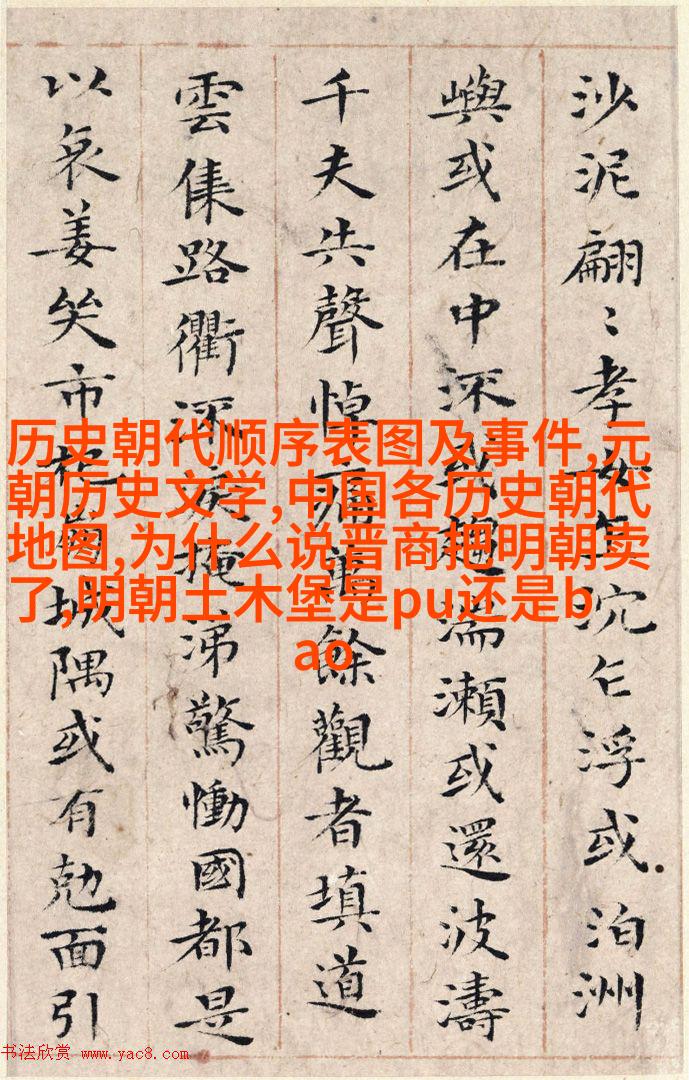 历史朝代顺序表图及事件,元
朝历史文学,中国各历史朝代
地图,为什么说晋商把明朝卖
了,明朝土木堡是pu还是b
ao
沙泥翩〻孝女乍沉乍浮或泊洲
嶼或在中深或趍湍瀨或還波濤
千夫共聲悼痛萬餘觀者填道
雲集路衢流淚掩涕驚慟國都是
以哀姜哭市杞崩城隅或有尅面引
书法欣赏 www.yac8.com